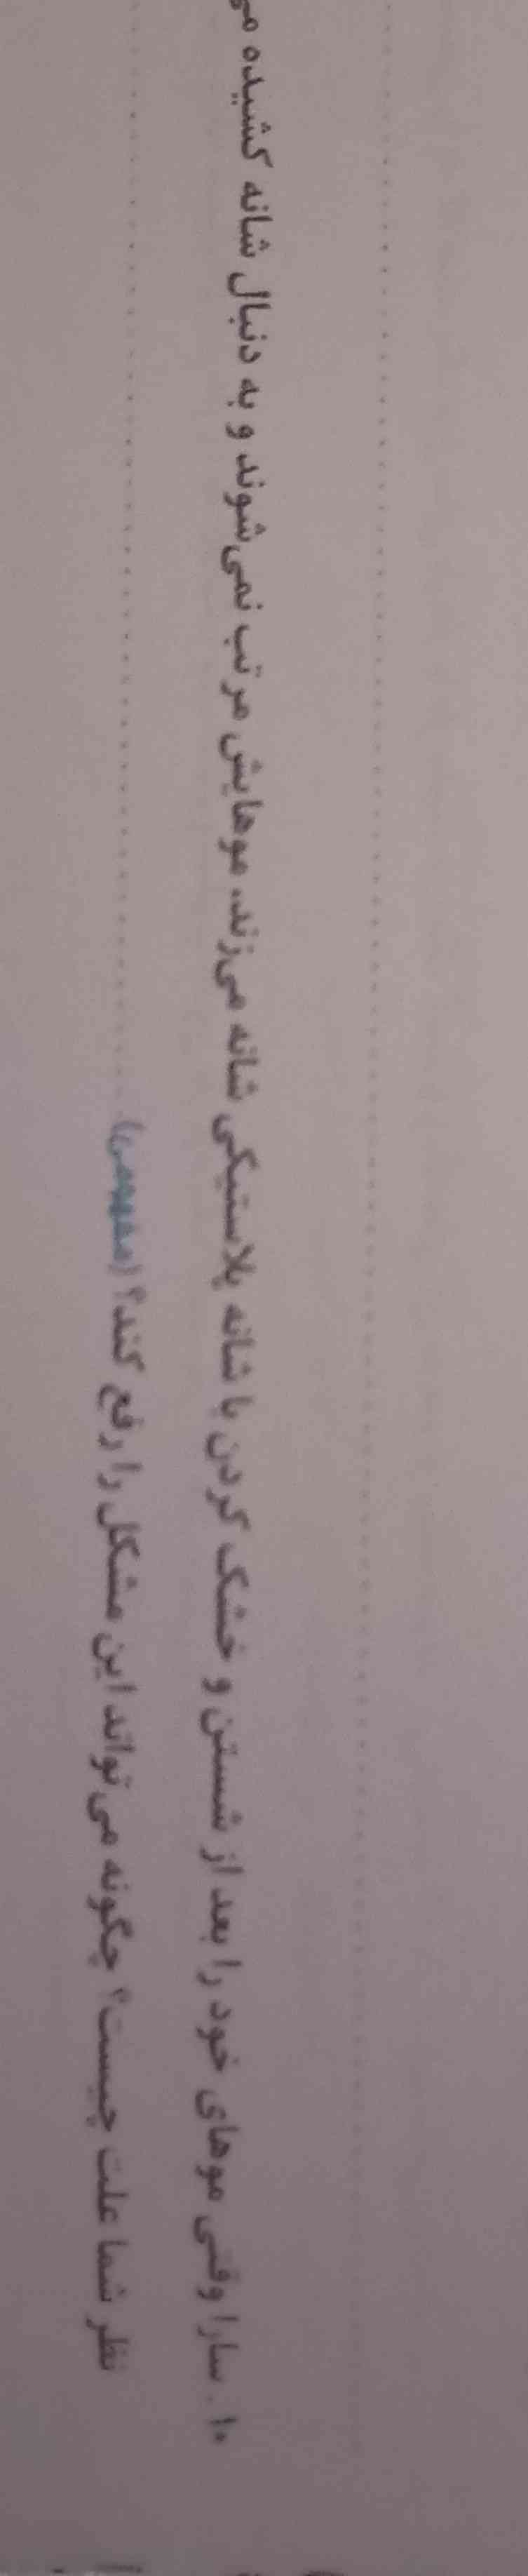 ۱۰. سارا وقتی موهای خود را بعد از شستن و خشک کردن با شانه پلاستیکی شانه می‌زند، موهایش مرتب نمی‌شوند و به دنبال شانه کشیده می
نظر شما علت چیست؟ چگونه می‌تواند این مشکل را رفع کند؟ (مفهومی)